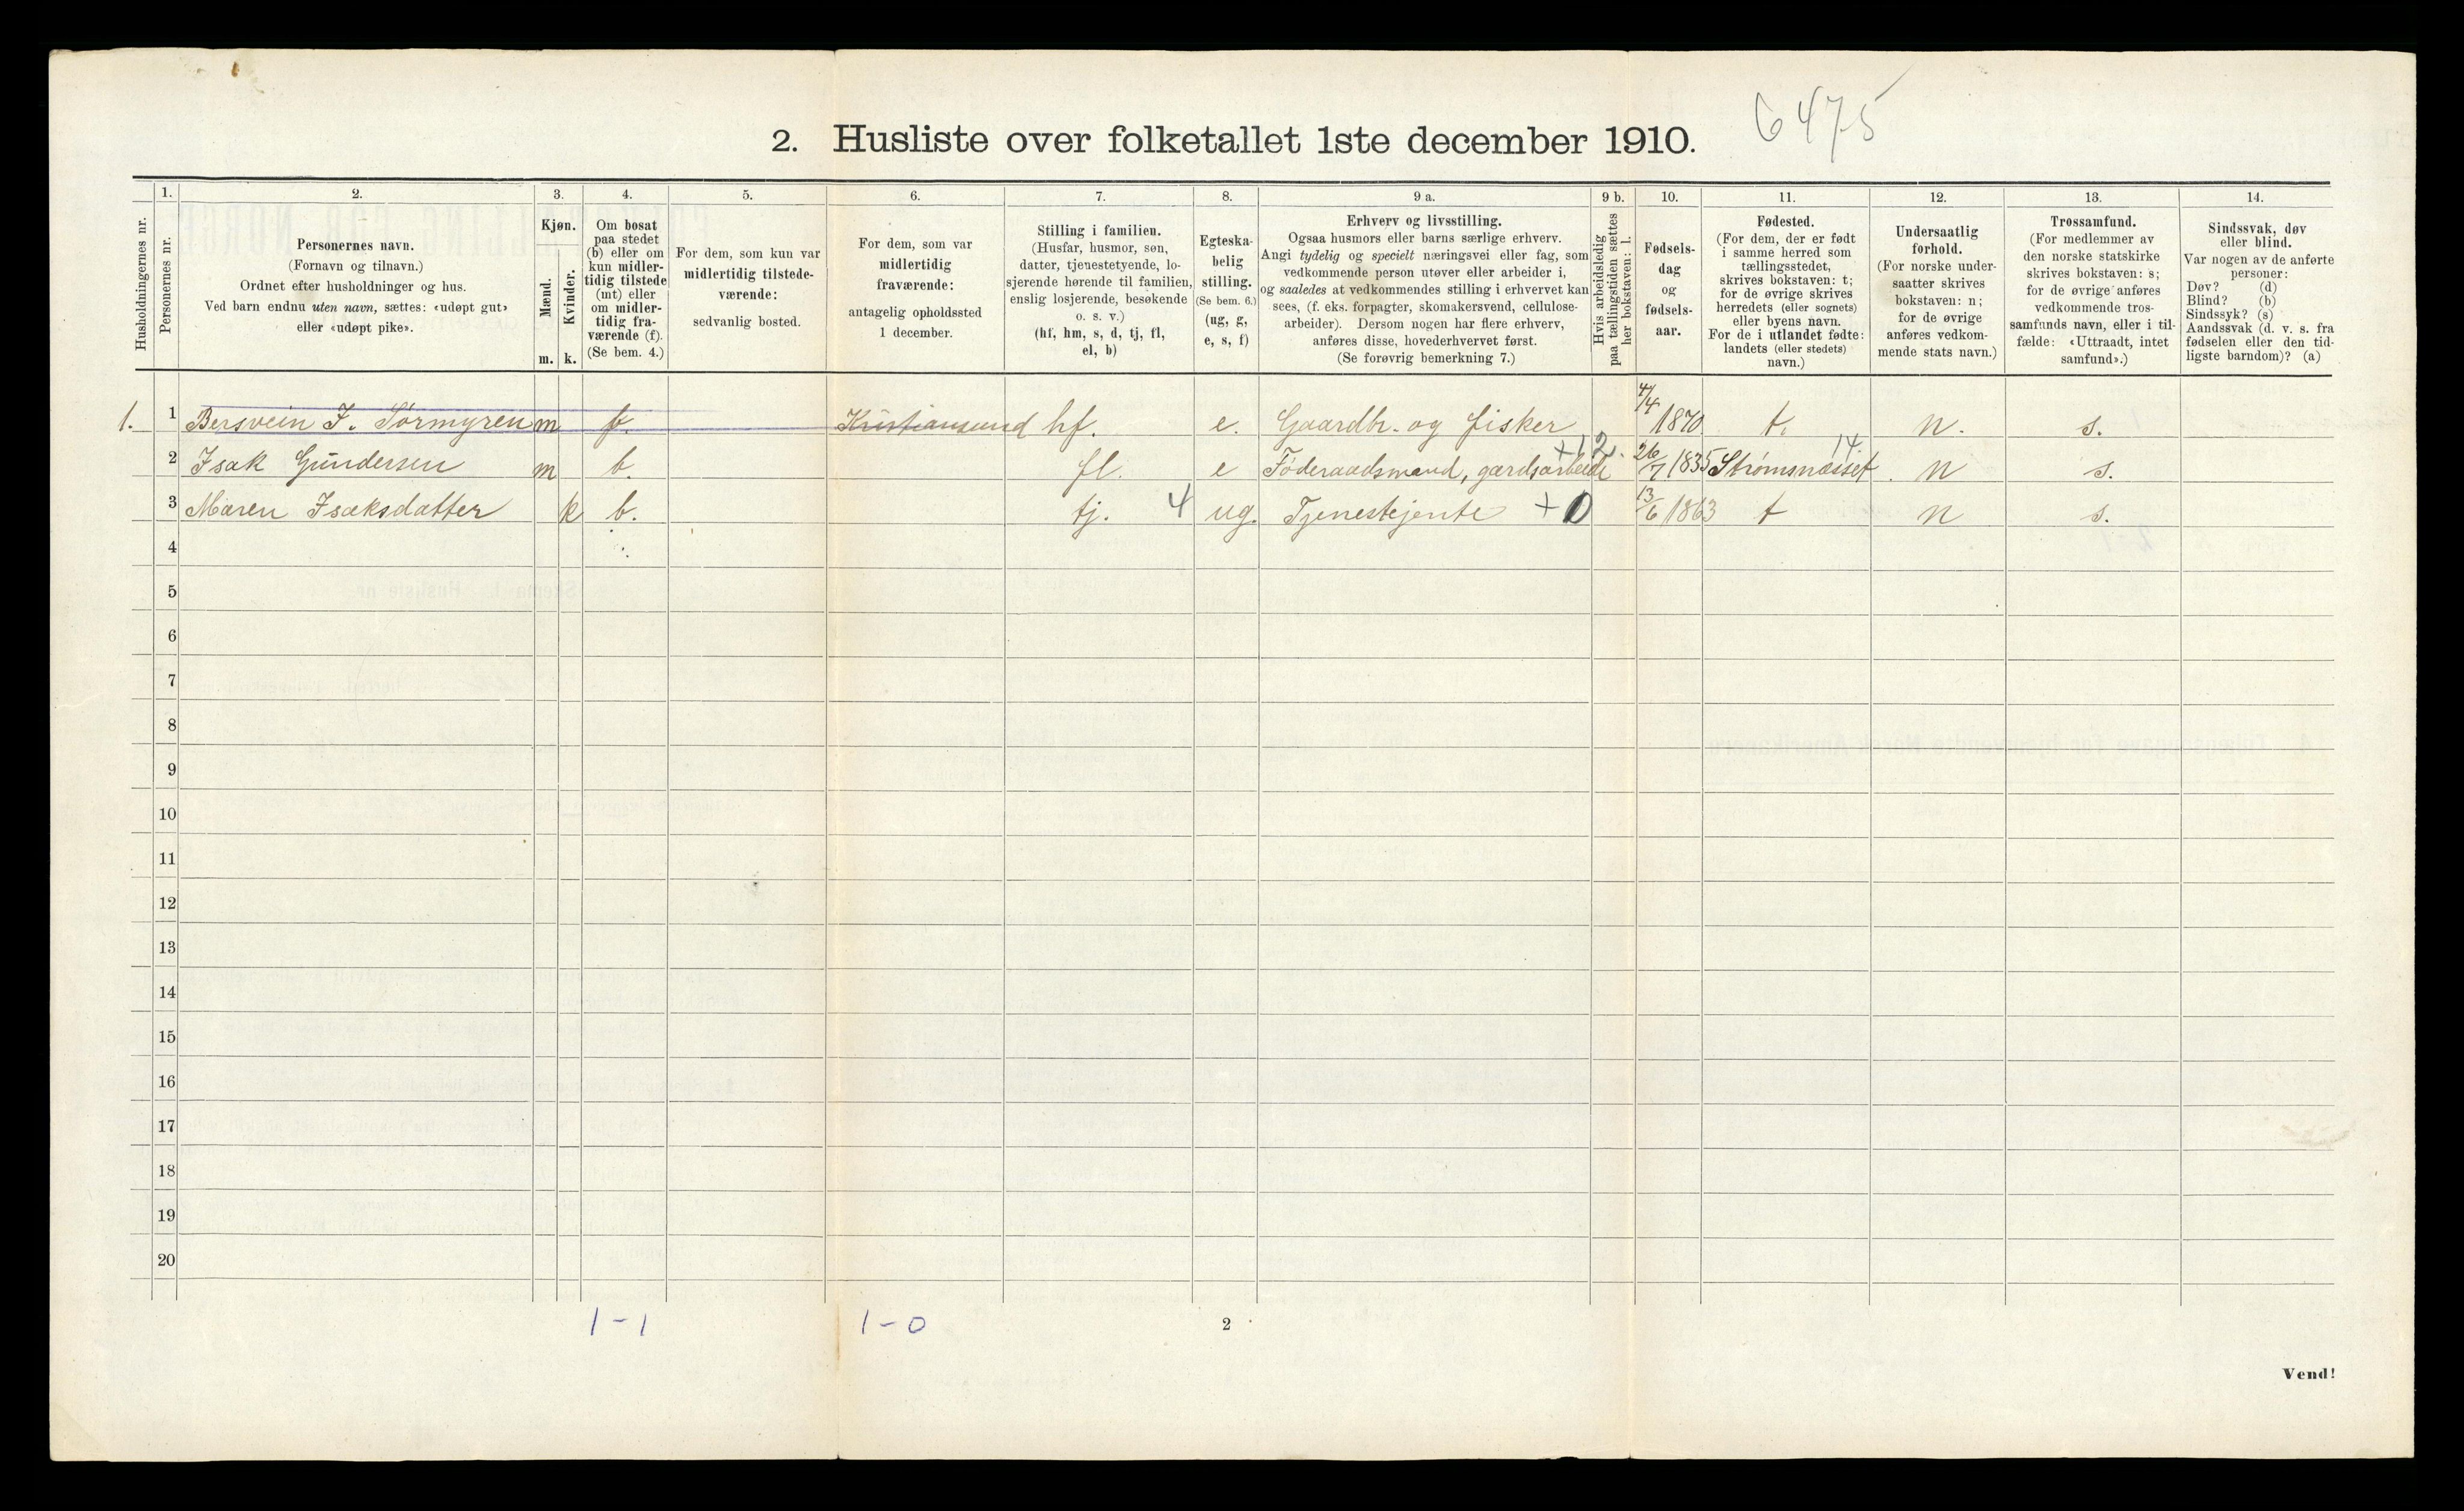 6475
2. Husliste over folketallet 1ste december 1910.
Husholdningernes nr.
1.
Personernes nr.
2.
Personernes navn.
(Fornavn og tilnavn.)
Ordnet efter husholdninger og hus.
Ved barn endnu uten navn, sættes: «udøpt gut»
eller «udøpt pike».
3.
Kjøn.
Mænd.
Kvinder.
m. k.
4.
Om bosat
paa stedet
(b) eller om
kun midler-
tidig tilstede
(mt) eller
om midler-
tidig fra-
værende (f).
(Se bem. 4.)
5.
For dem, som kun var
midlertidig tilstede-
værende:
sedvanlig bosted.
6.
For dem, som var
midlertidig
fraværende:
antagelig opholdssted
1 december.
7.
Stilling i familien.
(Husfar, husmor, søn,
datter, tjenestetyende, lo-
sjerende hørende til familien,
enslig losjerende, besøkende
o. s. v.)
(hf, hm, s, d, tj, fl,
el, b)
8.
Egteska-
belig
stilling.
(Se bem. 6.)
(ug, g,
e, s, f)
9 a.
Erhverv og livsstilling.
Ogsaa husmors eller barns særlige erhverv.
Angi tydelig og specielt næringsvei eller fag, som
vedkommende person utøver eller arbeider i,
og saaledes at vedkommendes stilling i erhvervet kan
sees, (f. eks. forpagter, skomakersvend, cellulose-
arbeider). Dersom nogen har flere erhverv,
anføres disse, hovederhvervet først.
(Se forøvrig bemerkning 7.)
9 b.
Hvis arbeidsledig
paa tællingstiden sættes
her bokstaven: l.
10.
Fødsels-
dag
og
fødsels-
aar.
11.
Fødested.
(For dem, der er født
i samme herred som
tællingsstedet,
skrives bokstaven: t;
for de øvrige skrives
herredets (eller sognets)
eller byens navn.
For de i utlandet fødte:
landets (eller stedets)
navn.)
12.
Undersaatlig
forhold.
(For norske under-
saatter skrives
bokstaven: n;
for de øvrige
anføres vedkom-
mende stats navn.)
13.
Trossamfund.
(For medlemmer av
den norske statskirke
skrives bokstaven: s;
for de øvrige anføres
vedkommende tros-
samfunds navn, eller i til-
fælde: «Uttraadt, intet
samfund».)
14.
Sindssvak, døv
eller blind.
Var nogen av de anførte
personer:
Døv? (d)
Blind? (b)
Sindssyk? (s)
Aandssvak (d. v. s. fra
fødselen eller den tid-
ligste barndom)? (a)
1. 1 Bersvein I. Sørmyren m f. Kristiansund hf. e. Gaardbr. og fisker 4/4 1870 t. n. s.
2 Isak Gundersen m b. fl. e Føderaadsmand, gardsarbeide +12. 26/7 1835 Strømsnæsset 14 n s.
3 Maren Isaksdatter k b. tj. 4 ug. Tjenestejente +0 13/6 1863 t n s.
4
5
6
7
8
9
10
11
12
13
14
15
16
17
18
19
20
1-1 1-0 2
Vend!